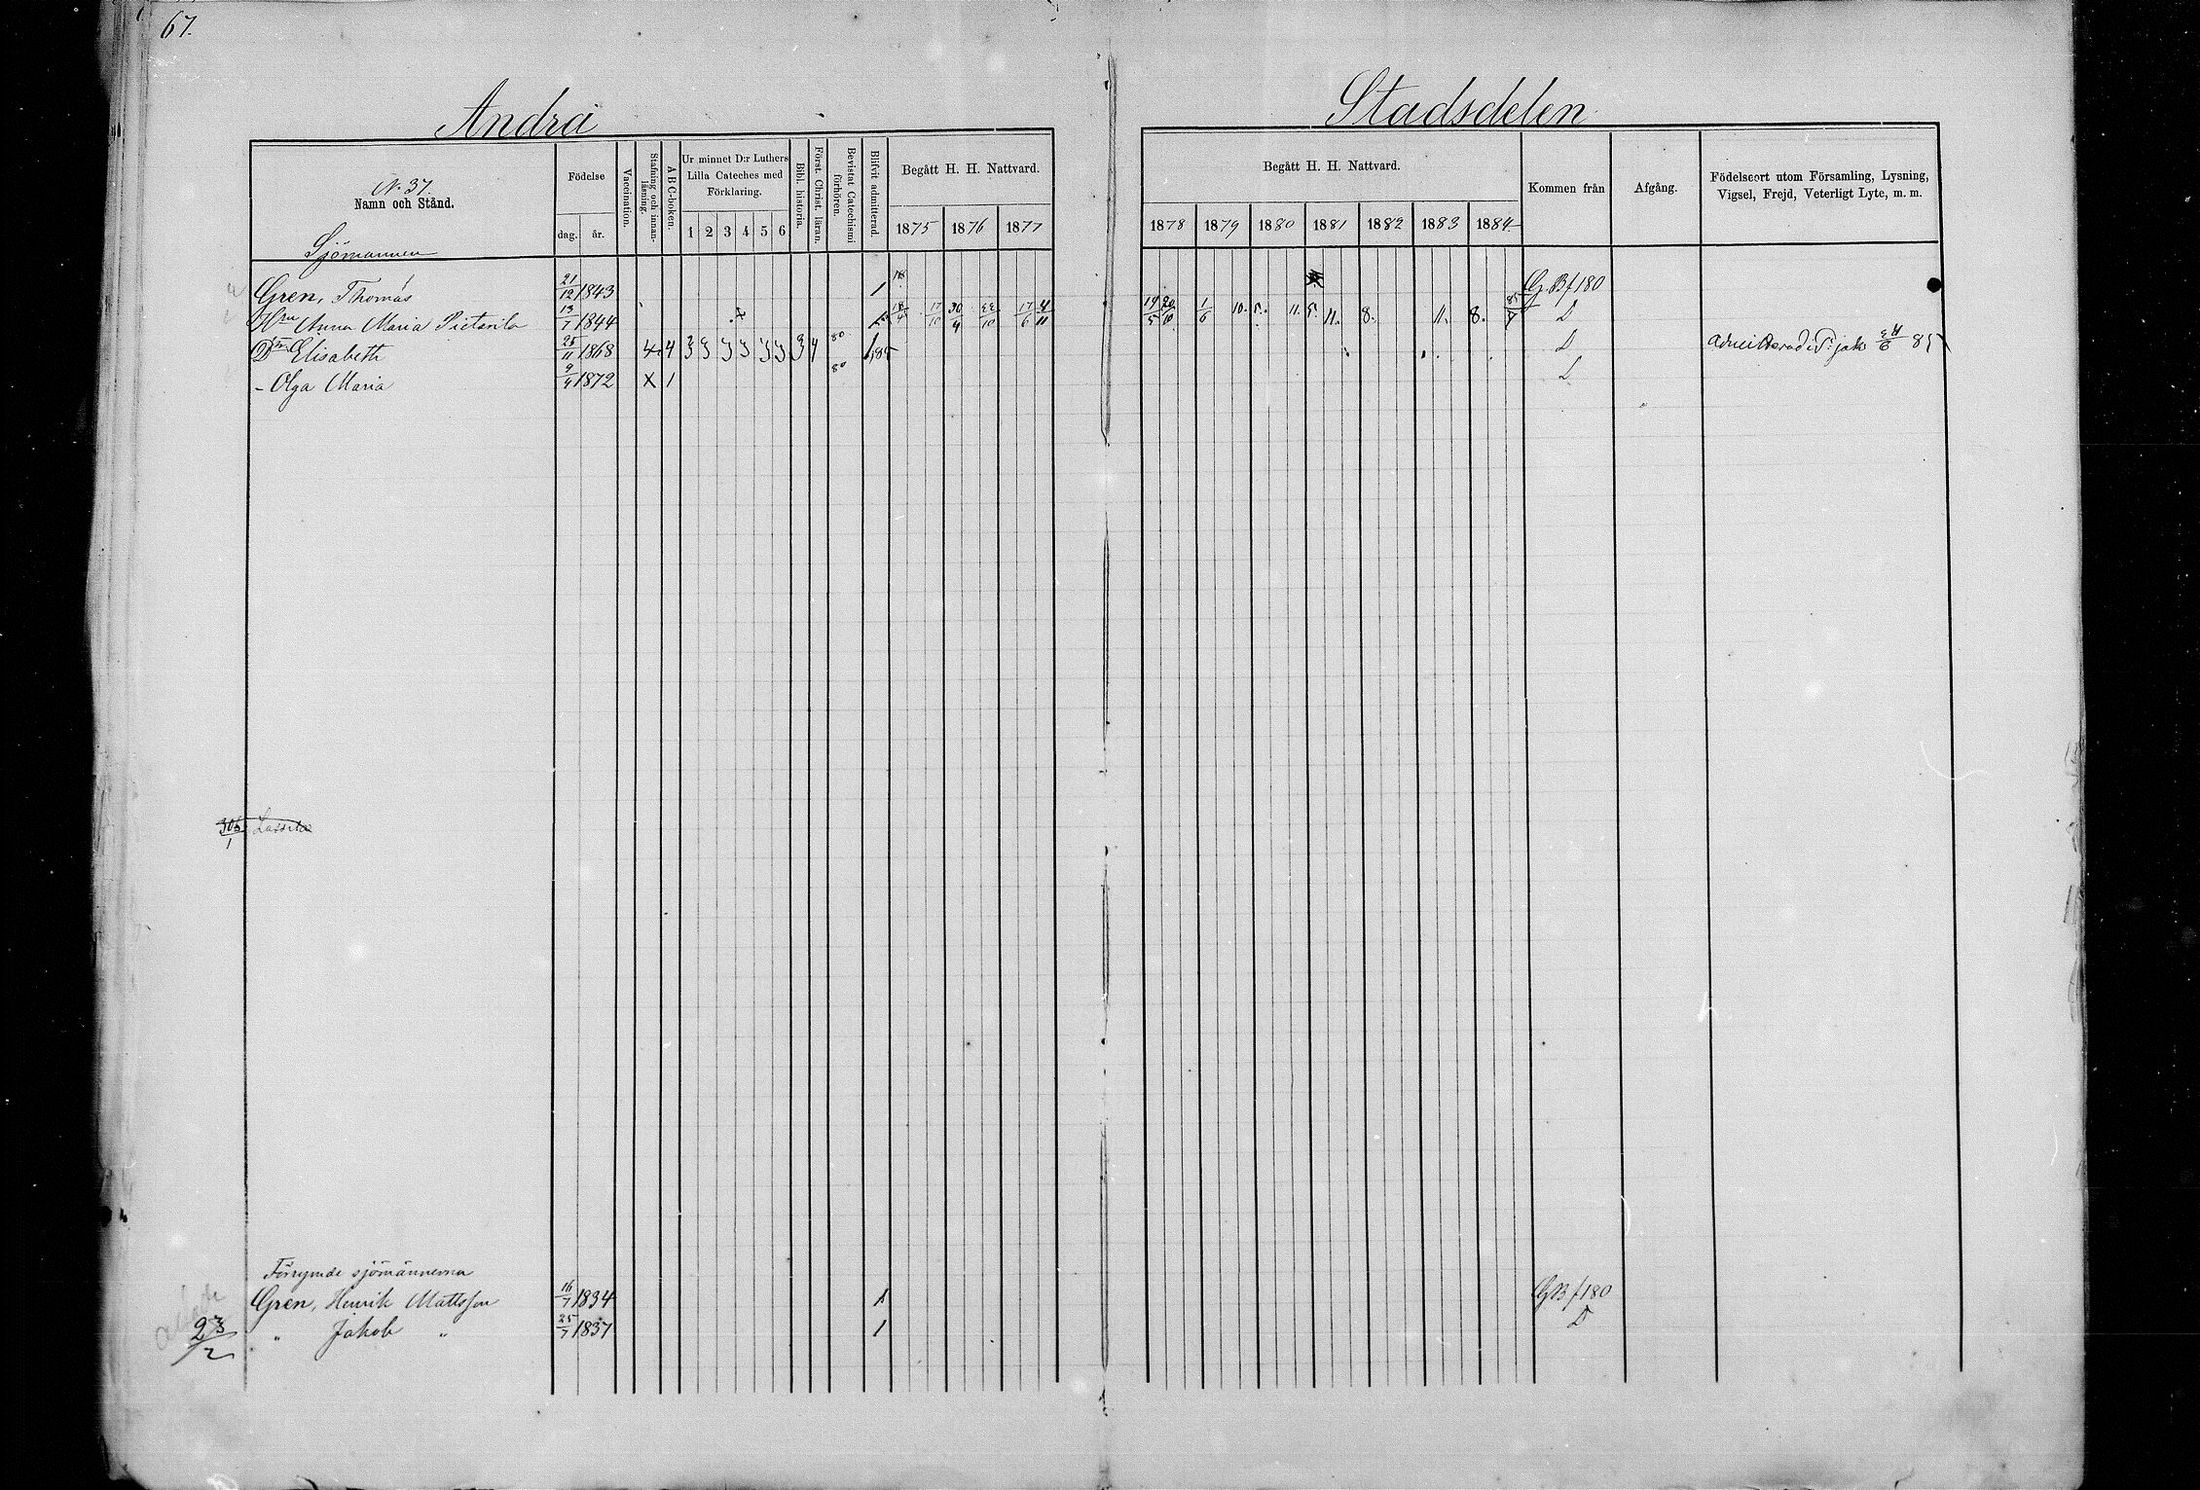 67.
Andra Stadsdelen
No 37.
Namn och Stånd.
Födelse
dag. år.
Vaccination.
Stafning och innanläsning.
A B C-boken.
Ur minnet D:r Luthers Lilla Cateches med Förklaring.
1 2 3 4 5 6
Bibl. historia.
Först. Christ. läran.
Bevistat Catechismi förhören.
Blifvit admitterad.
Begått H. H. Nattvard.
1875 1876 1877
Begått H. H. Nattvard.
1878 1879 1880 1881 1882 1883 1884
Kommen från
Afgång.
Födelseort utom Församling, Lysning, Vigsel, Frejd, Veterligt Lyte, m. m.
Sjömannen
Gren, Thomas 21/12 1843 1 G. B f 180
Hru Anna Maria Pietarila 13/7 1844 18/4 17/10 30/4 22/10 17/6 4/11 14/5 20/10 1/6 10. 5. 11. 5. 11. 8. 11. 8. D
Dtr Elisabeth 25/11 1868 4 4 3 3 3 3 3 3 3 4 80 1,85 D 85
- Olga Maria 9/4 1872 X 1 80 D
Lassila
Förrymde sjömännerna
Gren, Henrik Mattsson 16/7 1834 1 GB f 180
" Jakob " 25/7 1837 1 D
23/2